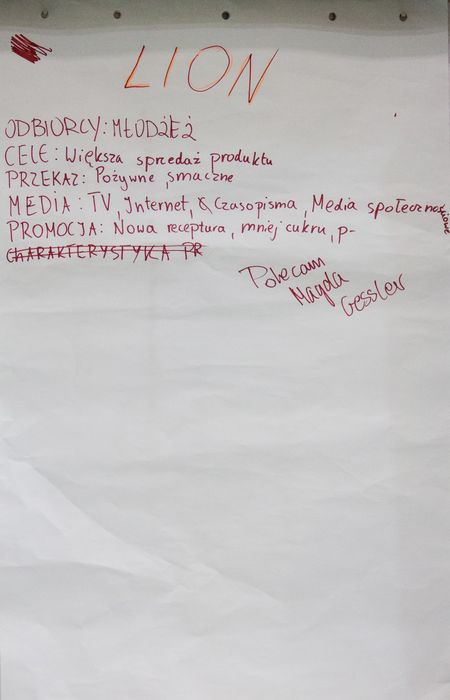 LION
ODBIORCY: MŁODZIEŻ
CELE: Większa sprzedaż produktu
PRZEKAZ: Pożywne, smaczne
MEDIA: TV, Internet, Czasopisma, Media społecznościowe
PROMOCJA: Nowa receptura, mniej cukru, p-
CHARAKTERYSTYKA PR
Polecam
Magda
Gessler